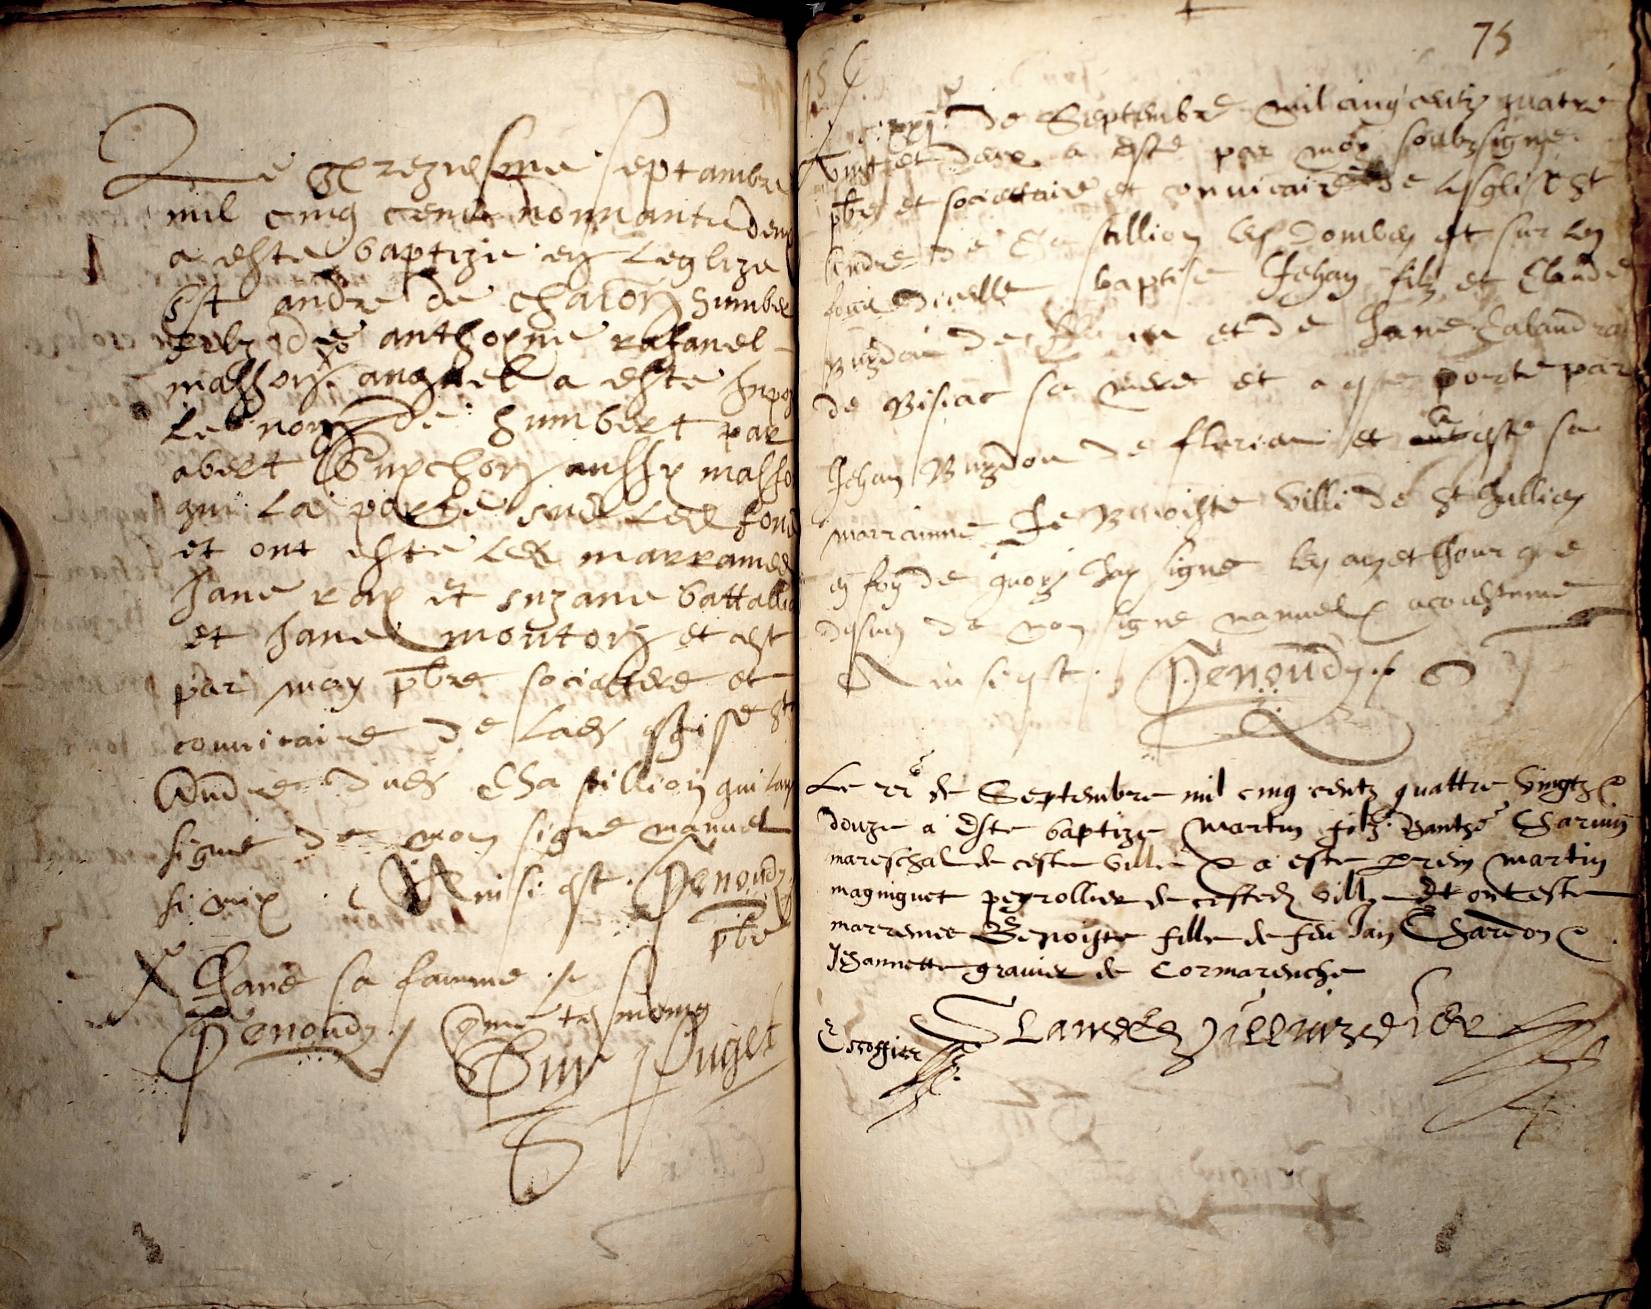 Le treziesme septambre
mil cinq cens nonnante deux
a este baptize en leglize
St andre de chatton humber
filz de anthoyne rafanel
masson auquel a este Inpo
Le nom de humbert par
abert Guychon aussy masso
qui La porte sur Led fond
et ont este Les marraines
Jane ray et suzane battallia
et Jane montorz et est
par moy pbre sociattere et
convicaire de Lad esglisse St
Andre dud Chastillion qui lay
signe de mon signe manuel
si mix Ainsi est Penoudz
pbre
Jane sa famme
Penoudz
Guy Puget
75
xxj de Septembre mil cinq centz quatre
vingt et doze a este par moy soubzsigne
pbre et sociattaire et convicaire de lesglise St
Andre de Chastillion les Dombes et sur les
fons dicelle baptise Jehan filz et Claude
Buydon de et de Jane
de Bisiac sa mere et a este porte par
Jehan Buydon de et a este sa
marrainne Benoiste Villi de St Jullien
en foy de quoy Jay signe les an et Jour que
desus de mon signe manuel acoustume
Ainsi est Penoudz
Le xx de Septembre mil cinq centz quattre vingtz &
douze a Este baptize Martin filz Banthe Charvin
mareschal de ceste ville & a este prein Martin
magniguet peyrollier de cested ville Et ont este
marreines Benoiste fille de feu Jan Chardon &
Jehannette gravier de Cormarenche
Escoffier